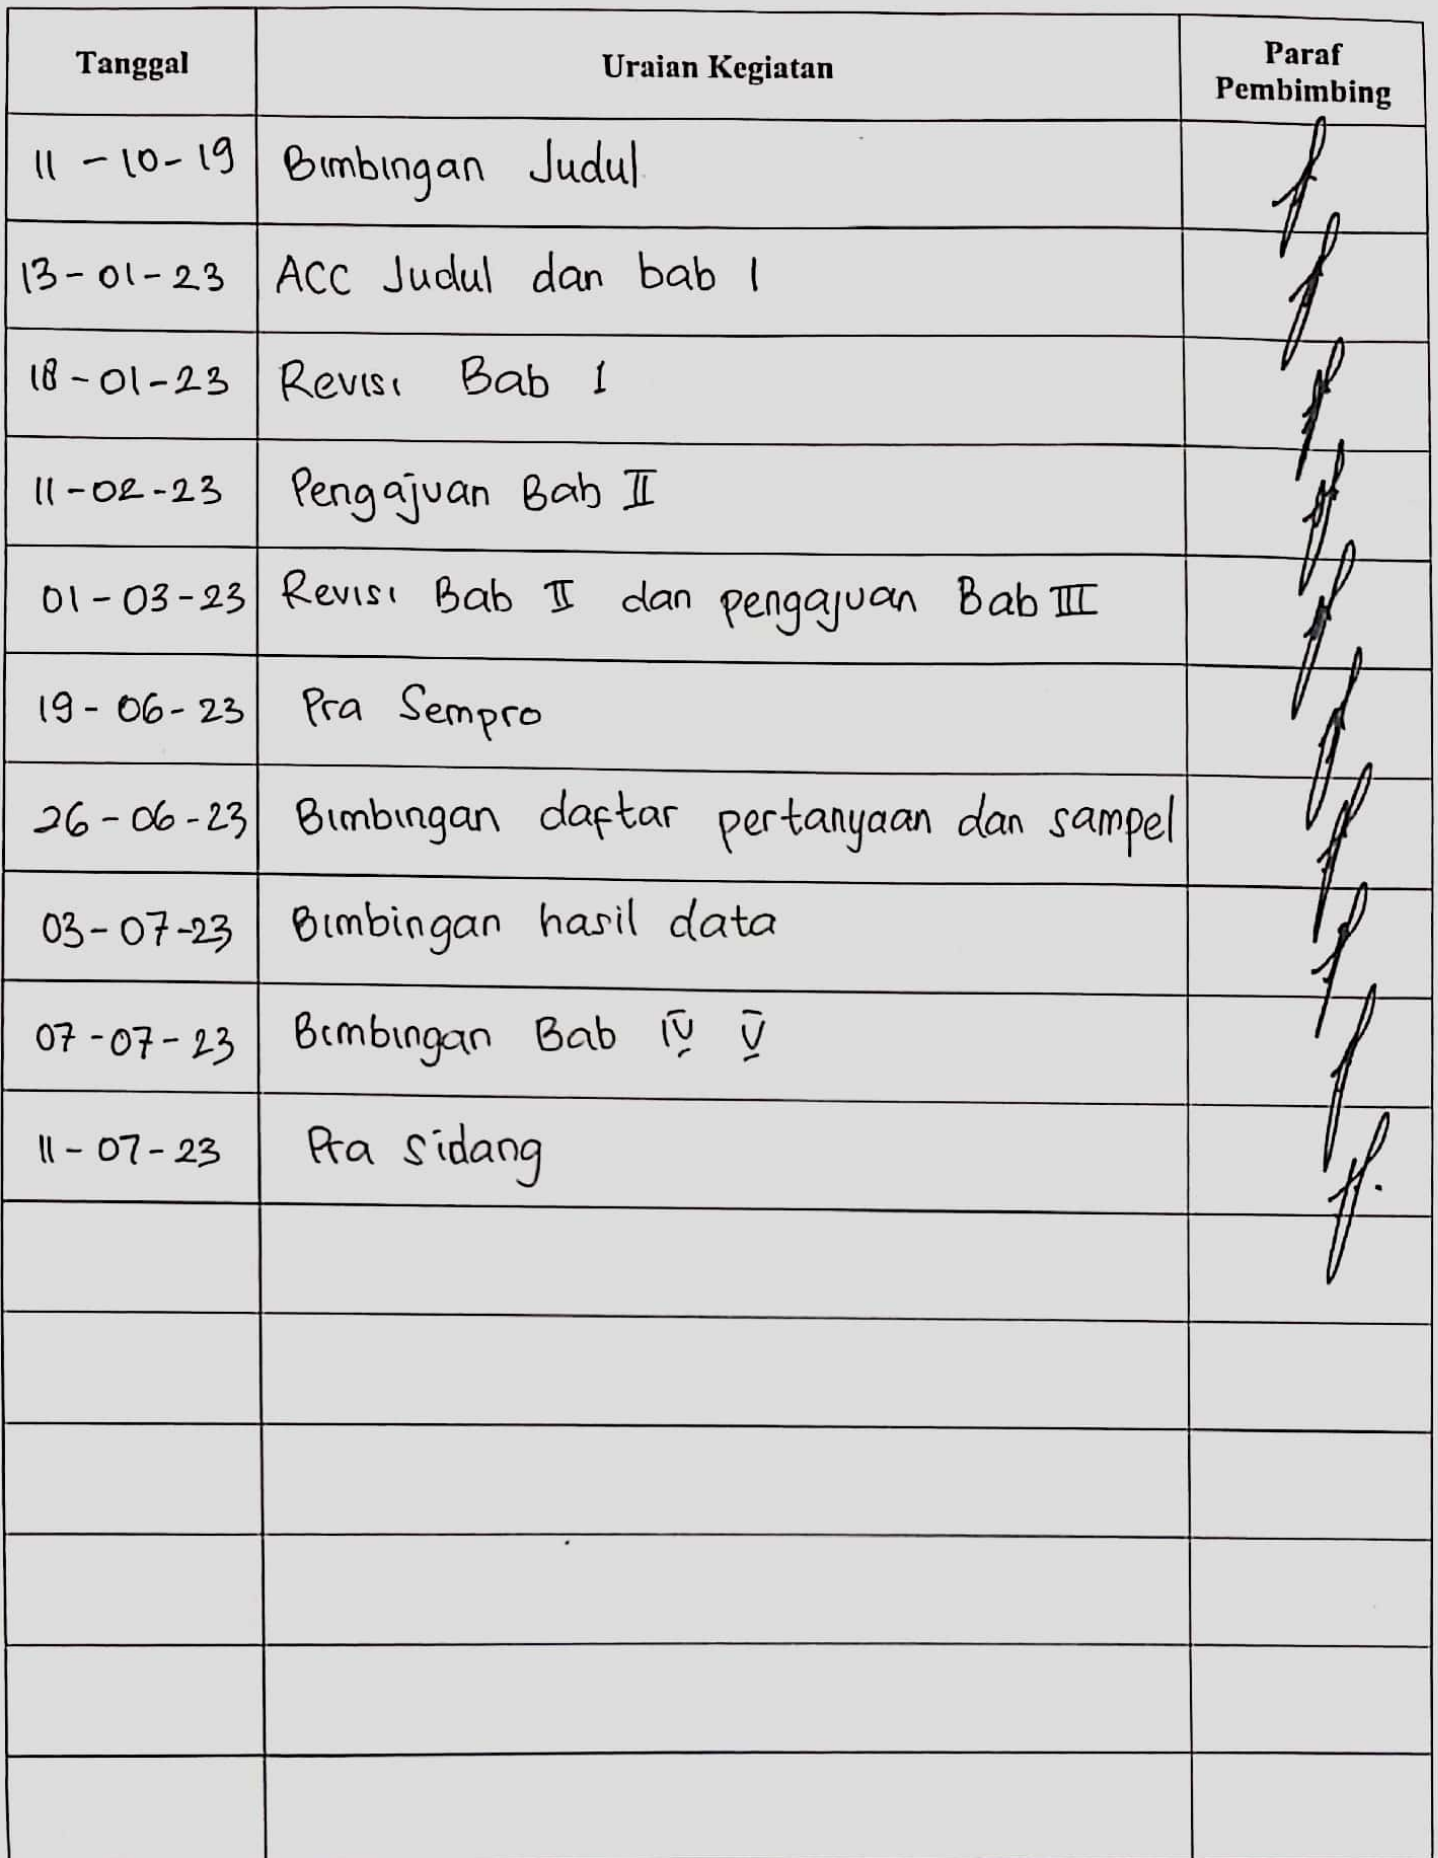 Tanggal Uraian Kegiatan Paraf Pembimbing
11-10-19 Bimbingan Judul
13-01-23 ACC Judul dan bab 1
18-01-23 Revisi Bab 1
11-02-23 Pengajuan Bab II
01-03-23 Revisi Bab II dan pengajuan Bab III
19-06-23 Pra Sempro
26-06-23 Bimbingan daftar pertanyaan dan sampel
03-07-23 Bimbingan hasil data
07-07-23 Bimbingan Bab IV V
11-07-23 Pra Sidang